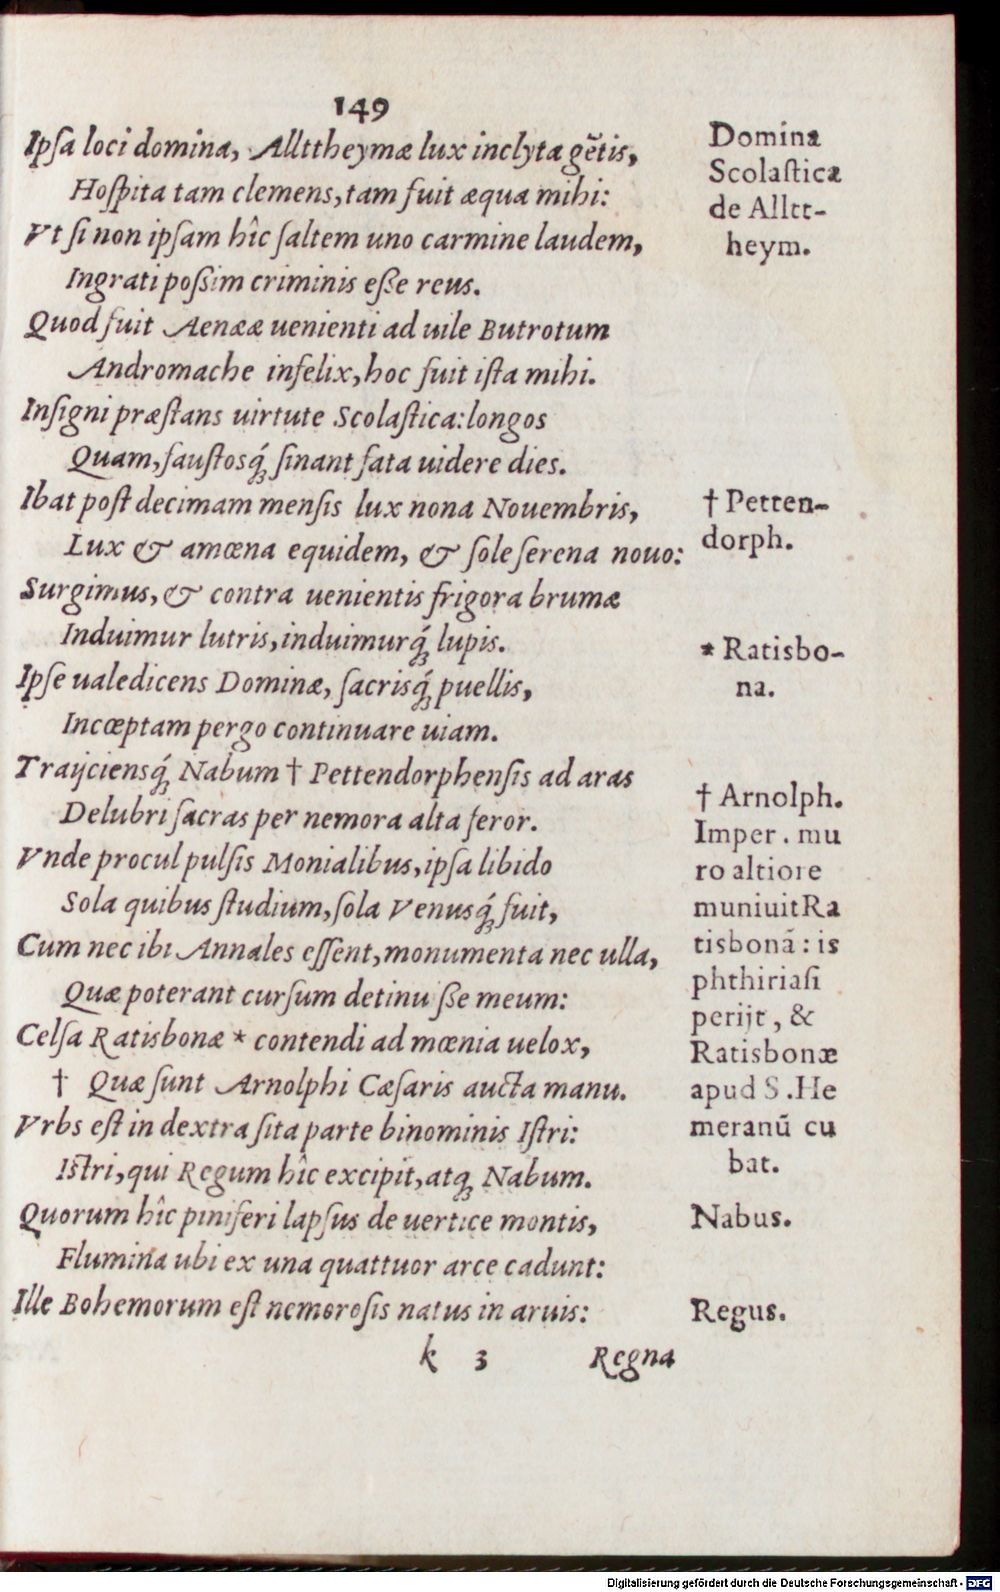 149
Ipſa loci domina, Allttheymæ lux inclyta gẽtis,
Hoſpita tam clemens, tam fuit æqua mihi:
Vt ſi non ipſam hîc ſaltem uno carmine laudem,
Ingrati poſsim criminis eſſe reus.
Quod fuit Aenææ uenienti ad uile Butrotum
Andromache infelix, hoc fuit iſta mihi.
Inſigni præſtans uirtute Scolaſtica: longos
Quam, fauſtosq́; ſinant fata uidere dies.
Ibat poſt decimam menſis lux nona Nouembris,
Lux & amœna equidem, & ſole ſerena nouo:
Surgimus, & contra uenientis frigora brumæ
Induimur lutris, induimurq́; lupis.
Ipſe ualedicens Dominæ, ſacrisq́; puellis,
Incœptam pergo continuare uiam.
Traijciensq́; Nabum † Pettendorphenſis ad aras
Delubri ſacras per nemora alta feror.
Vnde procul pulſis Monialibus, ipſa libido
Sola quibus ſtudium, ſola Venusq́; fuit,
Cum nec ibi Annales eſſent, monumenta nec ulla,
Quæ poterant curſum detinuiſſe meum:
Celſa Ratisbonæ * contendi ad mœnia uelox,
† Quæ ſunt Arnolphi Cæſaris aucta manu.
Vrbs eſt in dextra ſita parte binominis Iſtri:
Iſtri, qui Regum hîc excipit, atq; Nabum.
Quorum hîc piniferi lapſus de uertice montis,
Flumina ubi ex una quattuor arce cadunt:
Ille Bohemorum eſt nemoroſis natus in aruis:
k 3 Regna
Domina
Scolaſtica
de Alltt-
heym.
† Petten-
dorph.
* Ratisbo-
na.
† Arnolph.
Imper. mu
ro altiore
muniuit Ra
tisbonã: is
phthiriaſi
perijt, &
Ratisbonæ
apud S. He
meranũ cu
bat.
Nabus.
Regus.
Digitalisierung gefördert durch die Deutsche Forschungsgemeinschaft - DFG